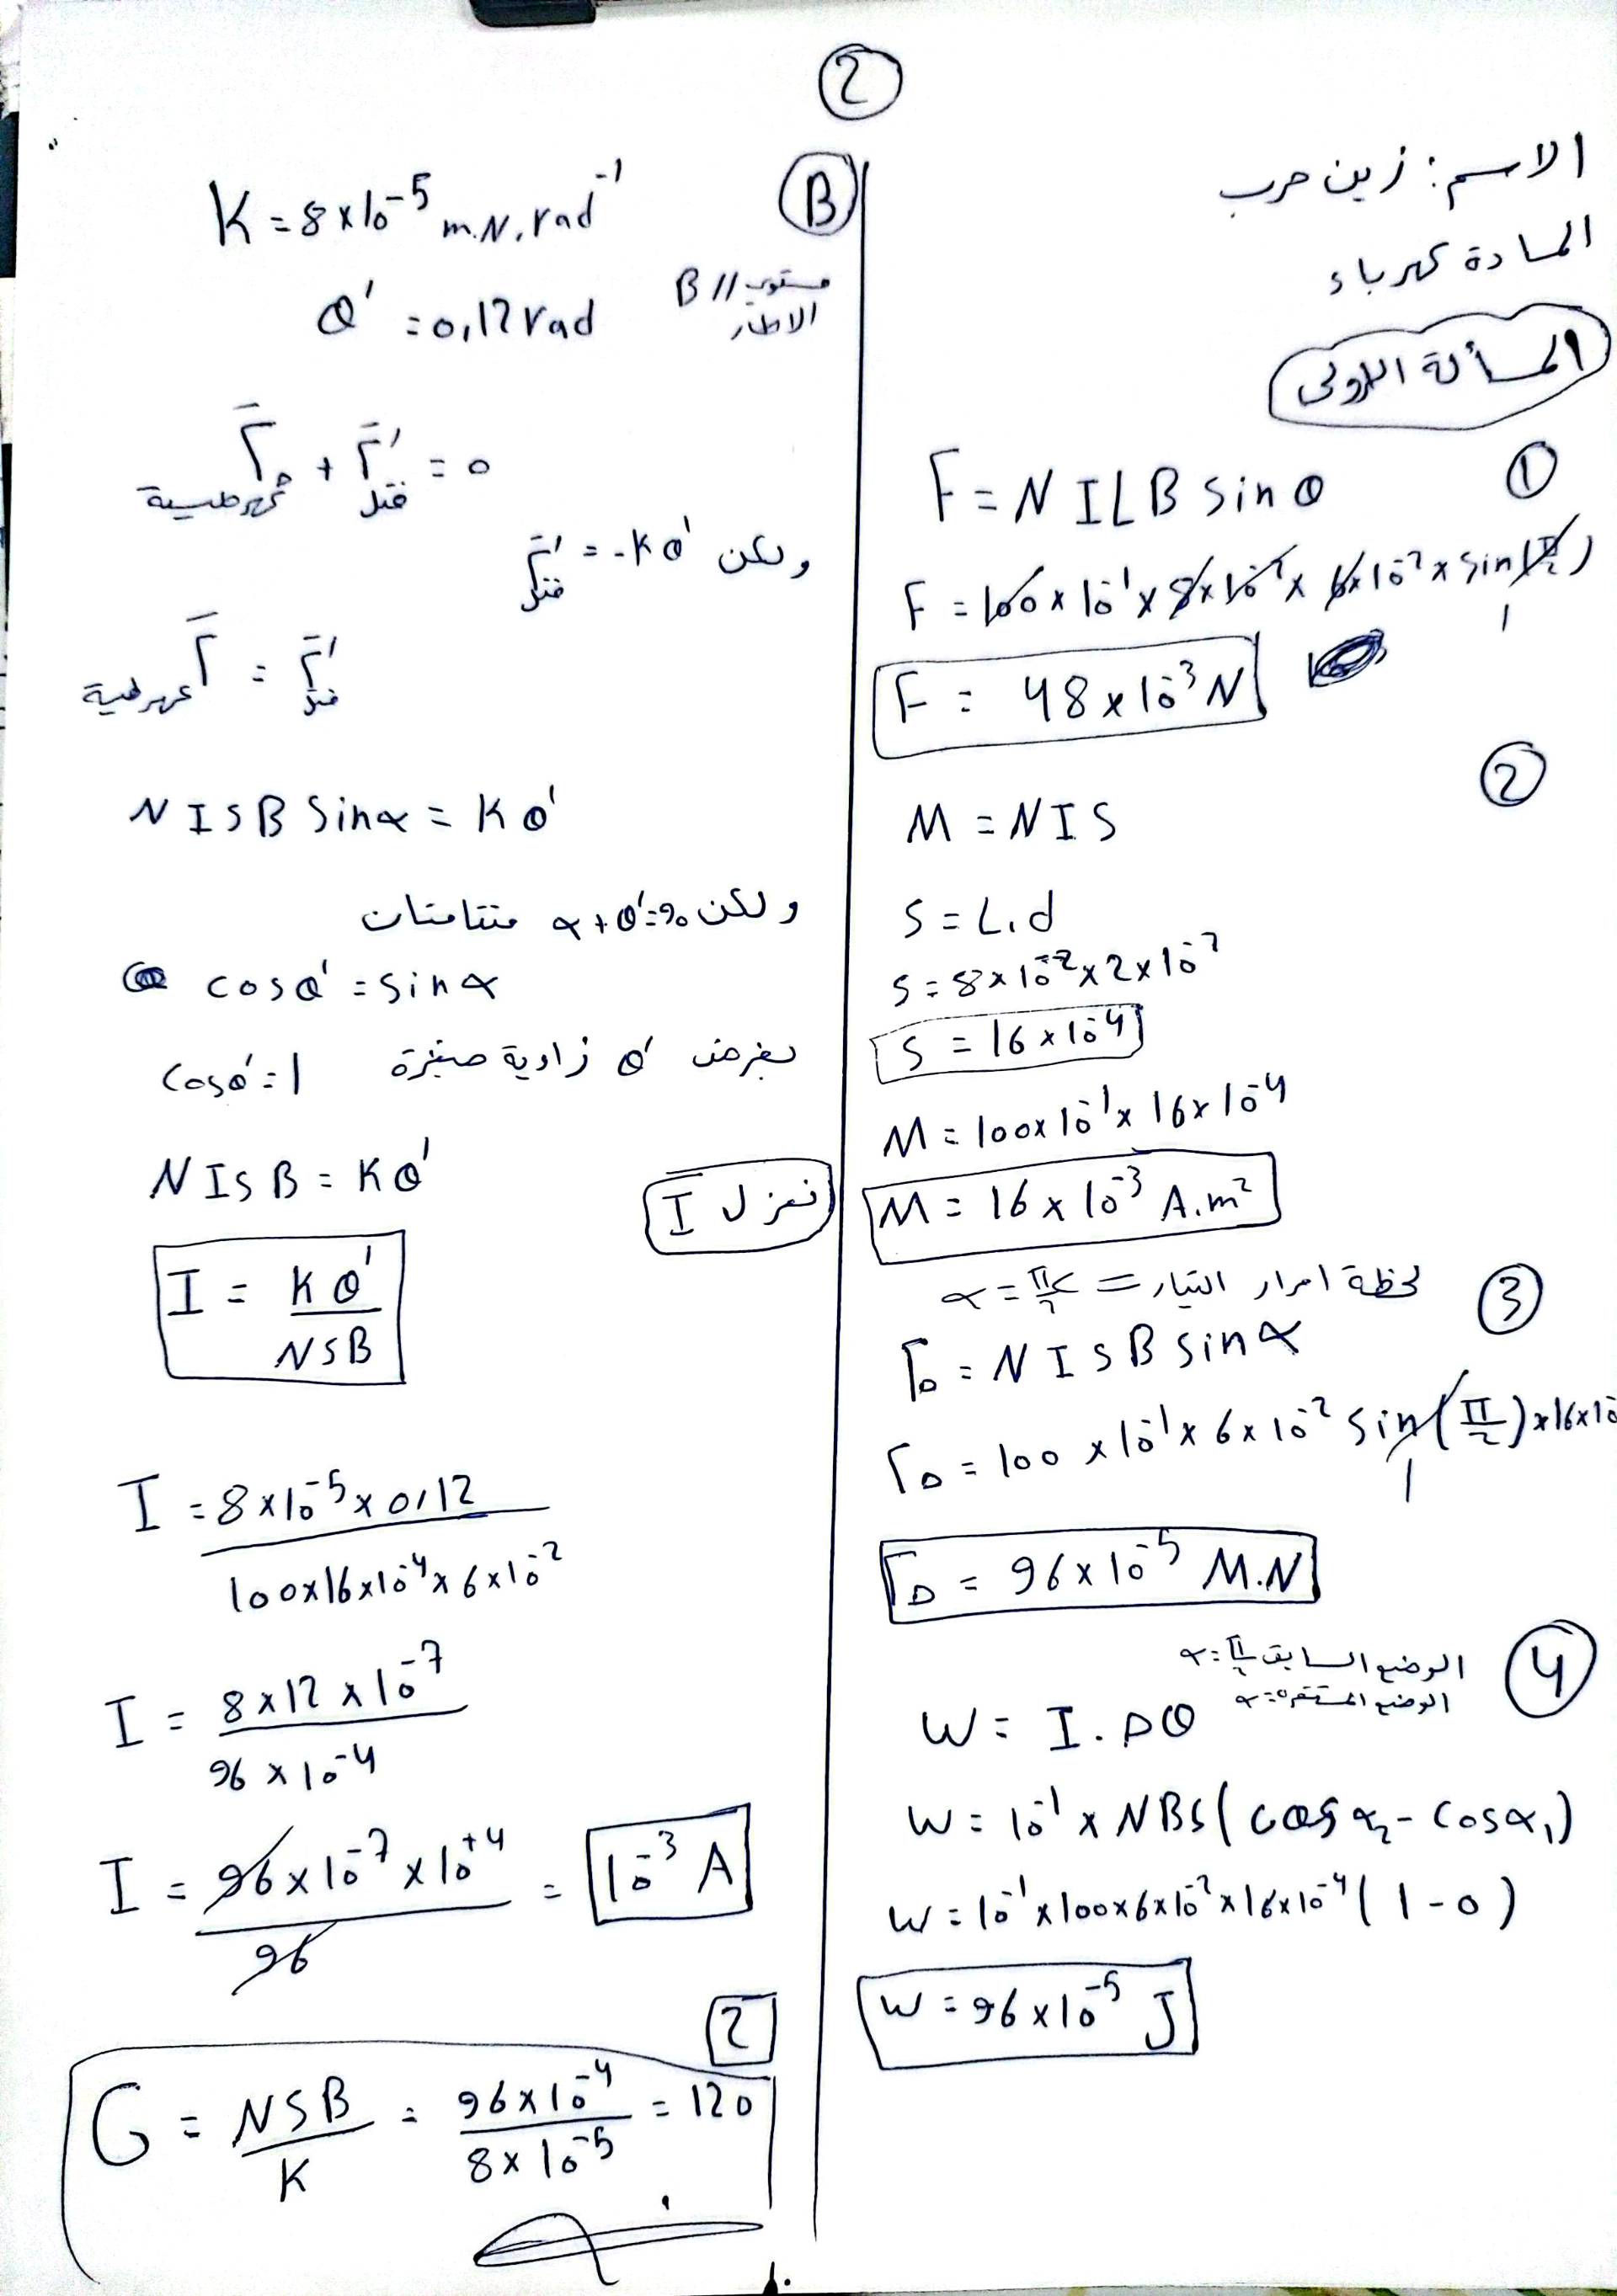 2
الاسم: زين حرب
المادة كهرباء
المسألة الاولى
①
F = N I L B sin θ
F = 100 x 10⁻¹ x 8 x 10⁻² x 6 x 10⁻² x sin(π/2)
1
F = 48 x 10⁻³ N
②
M = N I S
S = L.d
S = 8 x 10⁻² x 2 x 10⁻²
S = 16 x 10⁻⁴
M = 100 x 10⁻¹ x 16 x 10⁻⁴
M = 16 x 10⁻³ A.m²
③ لحظة امرار التيار = α = π/2
Γ₀ = N I S B sin α
Γ₀ = 100 x 10⁻¹ x 6 x 10⁻² sin(π/2) x 16 x 10
1
Γ₀ = 96 x 10⁻⁵ M.N
④ الوضع السابق α = π/2
الوضع المستقر α = 0
W = I . Δθ
W = 10⁻¹ x NBS ( cos α₂ - cos α₁)
W = 10⁻¹ x 100 x 6 x 10⁻² x 16 x 10⁻⁴ ( 1 - 0 )
W = 96 x 10⁻⁵ J
B
K = 8 x 10⁻⁵ m.N.rad⁻¹
θ' = 0,12 rad
B // مستوي
الاطار
Γ̄ كهرطيسية + Γ̄' فتل = 0
ولكن Γ̄' فتل = -kθ'
Γ̄ كهرطيسية = Γ̄' فتل
N I S B sin α = K θ'
ولكن α + θ' = 90 متتامتان
cos θ' = sin α
بفرض θ' زاوية صغيرة cos θ' = 1
N I S B = K θ'
نعزل I
I = K θ' / NSB
I = 8 x 10⁻⁵ x 0,12 / 100 x 16 x 10⁻⁴ x 6 x 10⁻²
I = 8 x 12 x 10⁻⁷ / 96 x 10⁻⁴
I = 96 x 10⁻⁷ x 10⁺⁴ / 96 = 10⁻³ A
2
G = NSB / K = 96 x 10⁻⁴ / 8 x 10⁻⁵ = 120